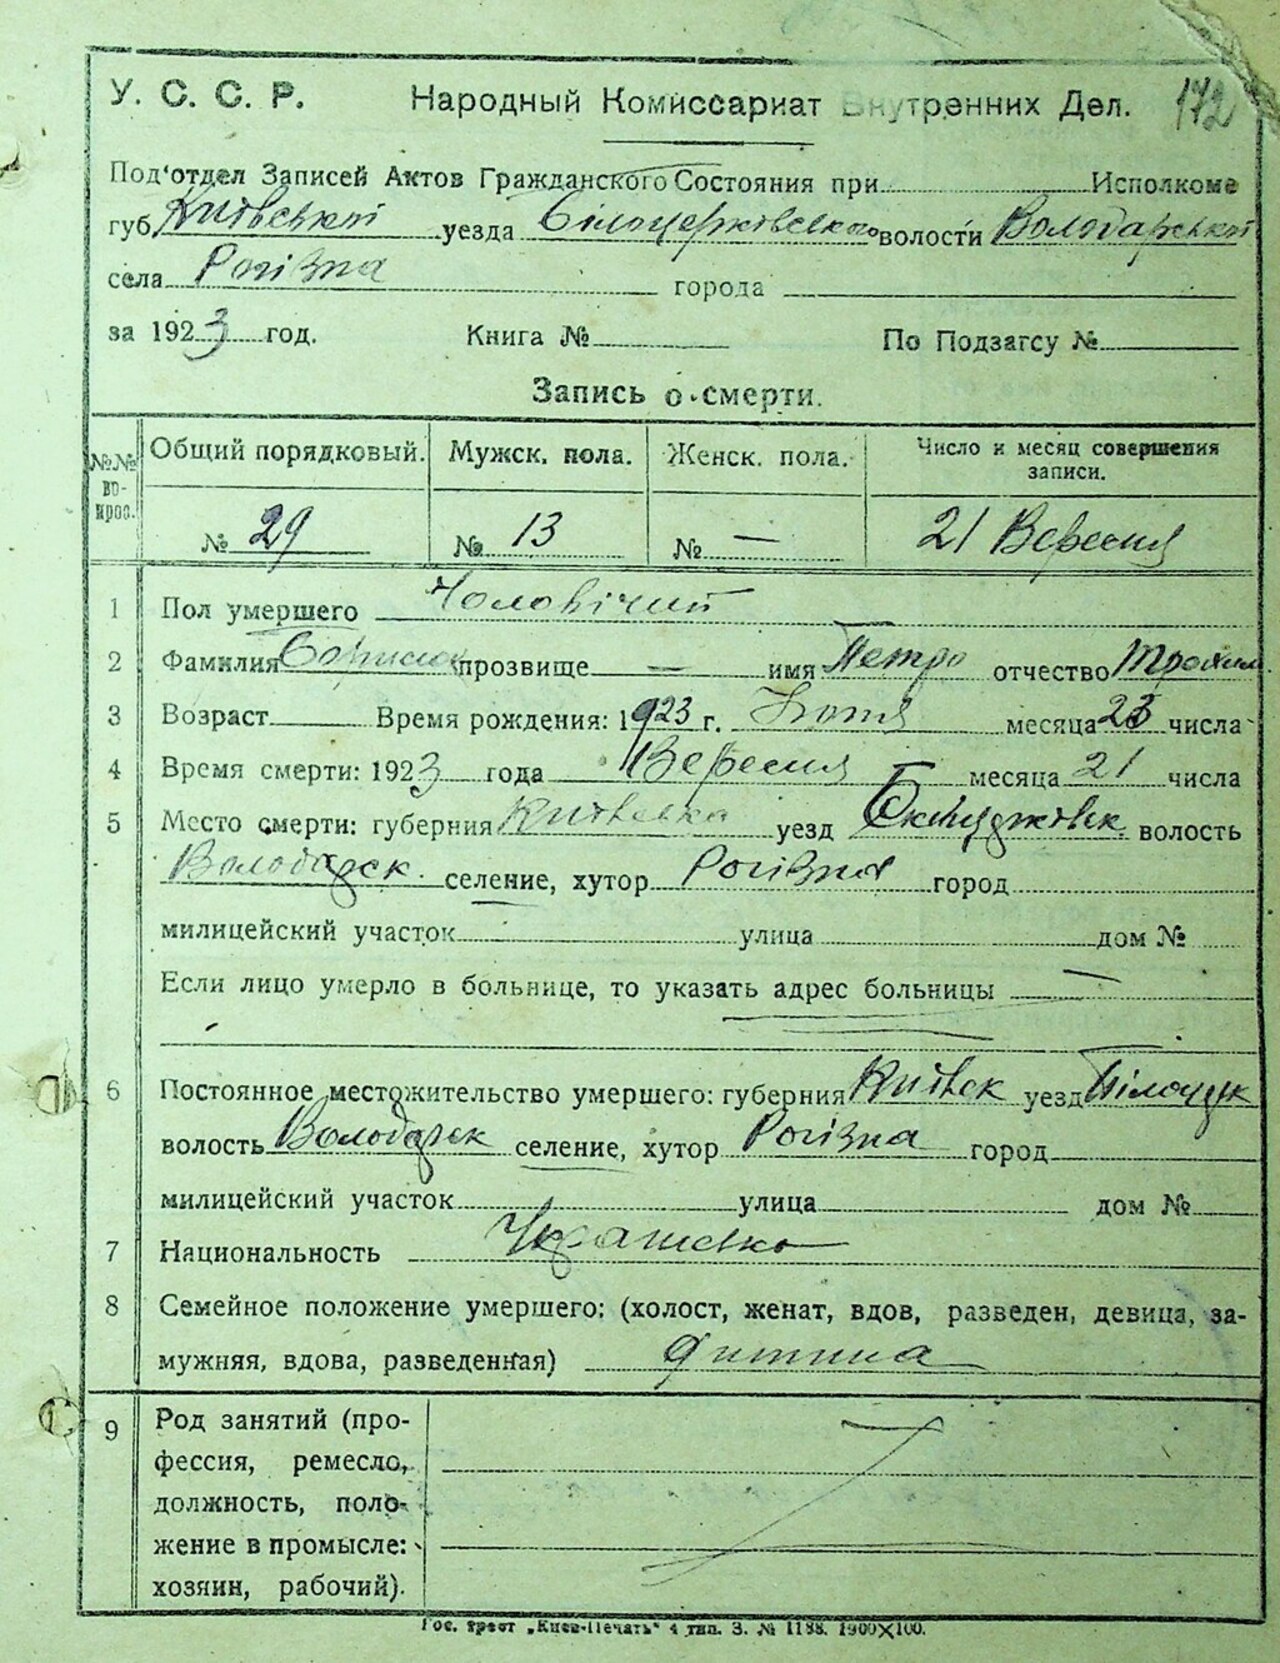 У. С. С. Р. Народный Комиссариат Внутренних Дел. 172
Под'отдел Записей Актов Гражданского Состояния при Исполкоме
губ. Київської уезда Білоцерківська волости Володарської
села Рогізна города
за 1923 год. Книга № По Подзагсу №
Запись о смерти.
№№ вопрос. Общий порядковый. Мужск. пола. Женск. пола. Число и месяц совершения записи.
№ 29 № 13 № — 21 Вересня
1 Пол умершего Чоловічий
2 Фамилия прозвище — имя Петро отчество Трохим.
3 Возраст Время рождения: 1923 г. месяца 23 числа
4 Время смерти: 1923 года Вересня месяца 21 числа
5 Место смерти: губерния Київська уезд волость
Володарск. селение, хутор Рогізна город
милицейский участок улица дом №
Если лицо умерло в больнице, то указать адрес больницы —
6 Постоянное местожительство умершего: губерния Київск уезд Білоцерк
волость Володарск селение, хутор Рогізна город
милицейский участок улица дом №
7 Национальность Українська
8 Семейное положение умершего: (холост, женат, вдов, разведен, девица, за-
мужняя, вдова, разведенная) дитина
9 Род занятий (про-
фессия, ремесло,
должность, поло-
жение в промысле:
хозяин, рабочий).
Гос. трест „Киев-Печать" 4 тип. З. № 1188. 1900×100.